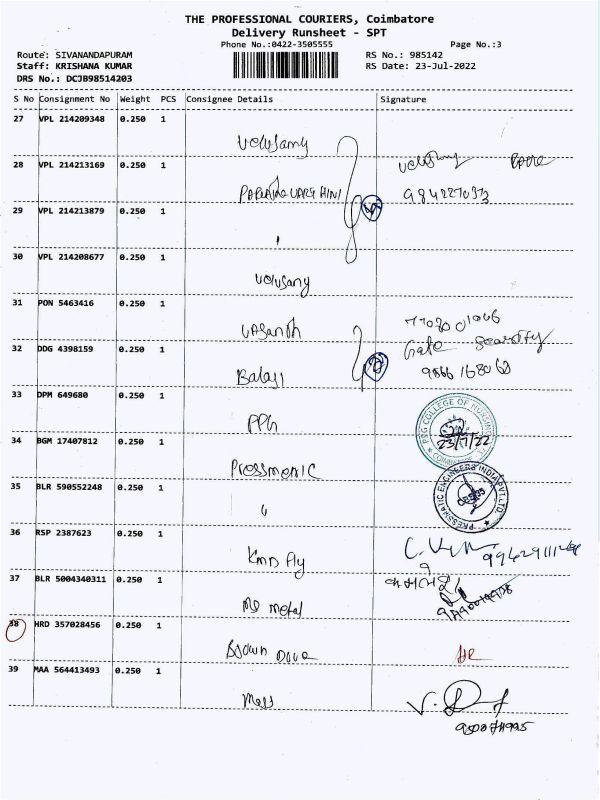 THE PROFESSIONAL COURIERS, Coimbatore
Delivery Runsheet - SPT
Phone No.:0422-3505555 Page No.:3
Route: SIVANANDAPURAM RS No.: 985142
Staff: KRISHANA KUMAR RS Date: 23-Jul-2022
DRS No.: DCJB98514203
S No Consignment No Weight PCS Consignee Details Signature
27 VPL 214209348 0.250 1
Velusamy
28 VPL 214213169 0.250 1
29 VPL 214213879 0.250 1
30 VPL 214208677 0.250 1
Velusamy
31 PON 5463416 0.250 1
Vasanth
32 DDG 4398159 0.250 1 Gate Security
Balaji
33 DPM 649680 0.250 1
PPG COLLEGE OF NURSING
23/7/22
PPG
34 BGM 17407812 0.250 1
Pressmatic
PRESSMATIC ENGINEERS INDIA PVT.LTD.
35 BLR 590552248 0.250 1
36 RSP 2387623 0.250 1
37 BLR 5004340311 0.250 1
metal
38 HRD 357028456 0.250 1
Brown Dove
39 MAA 564413493 0.250 1